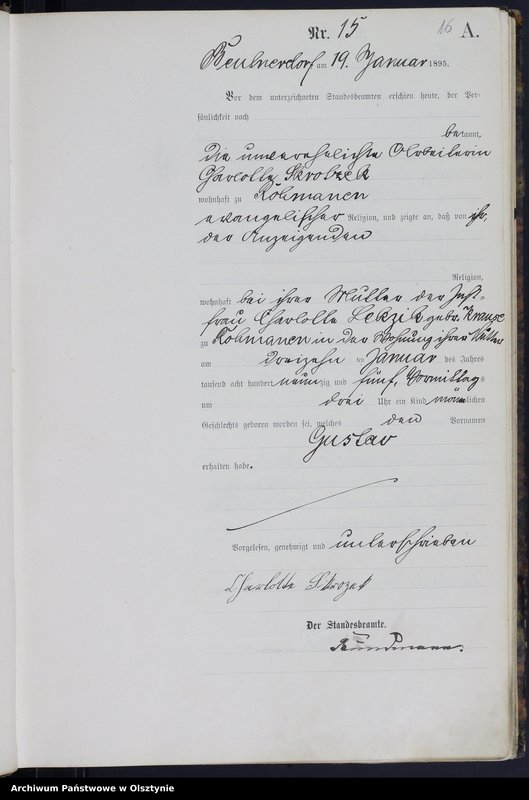 Nr. 15
16 A.
Beutnerdorf am 19. Januar 1895.
Vor dem unterzeichneten Standesbeamten erschien heute, der Per-
sönlichkeit nach
bekannt,
die unverehelichte Arbeiterin
Charlotte Skrobzek
wohnhaft zu Rohmanen
evangelischer Religion, und zeigte an, daß von ihr,
der Anzeigenden
Religion,
wohnhaft bei ihrer Mutter der
frau Charlotte geb. Krause
zu Rohmanen in der Wohnung ihrer Mutter
am dreizehn im Januar des Jahres
tausend acht hundert neunzig und fünf, Vormittags
um drei Uhr ein Kind männlichen
Geschlechts geboren worden sei, welches den Vornamen
Gustav
erhalten habe.
Vorgelesen, genehmigt und unterschrieben
Charlotte
Der Standesbeamte.
Archiwum Państwowe w Olsztynie